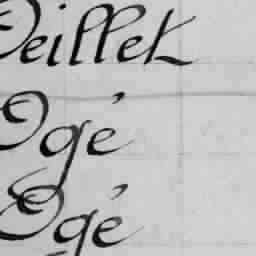 Oeillet
Ogé
Ogé